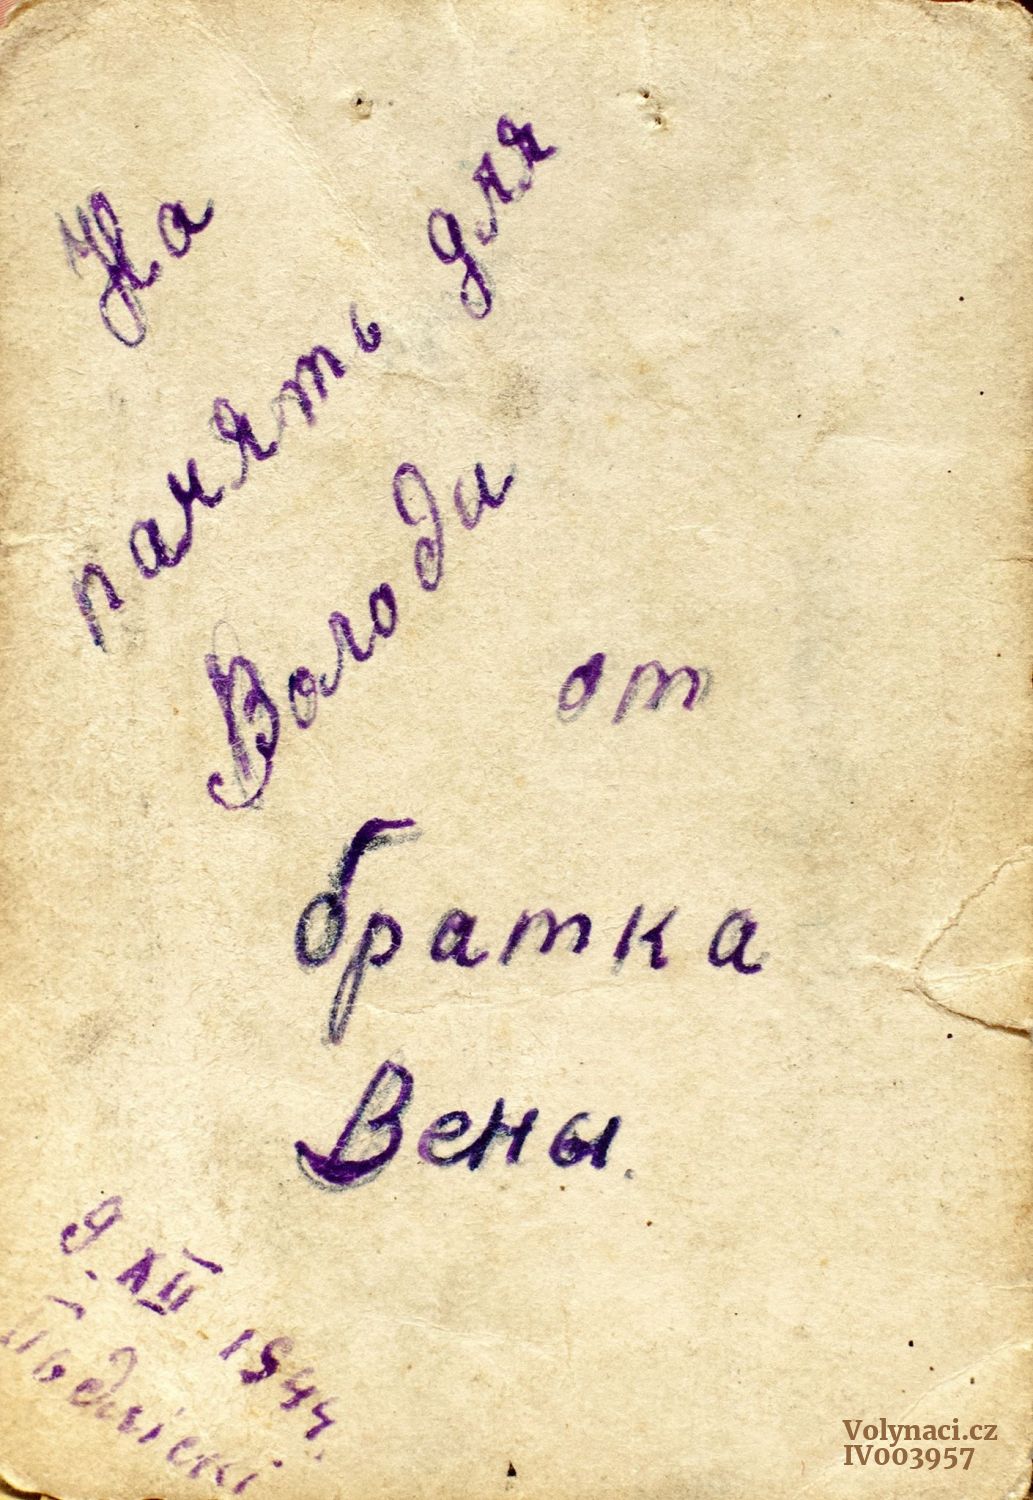 На
память для
Володи
от
братка
Вены.
9. XII 1944.
Volynaci.cz
IV003957